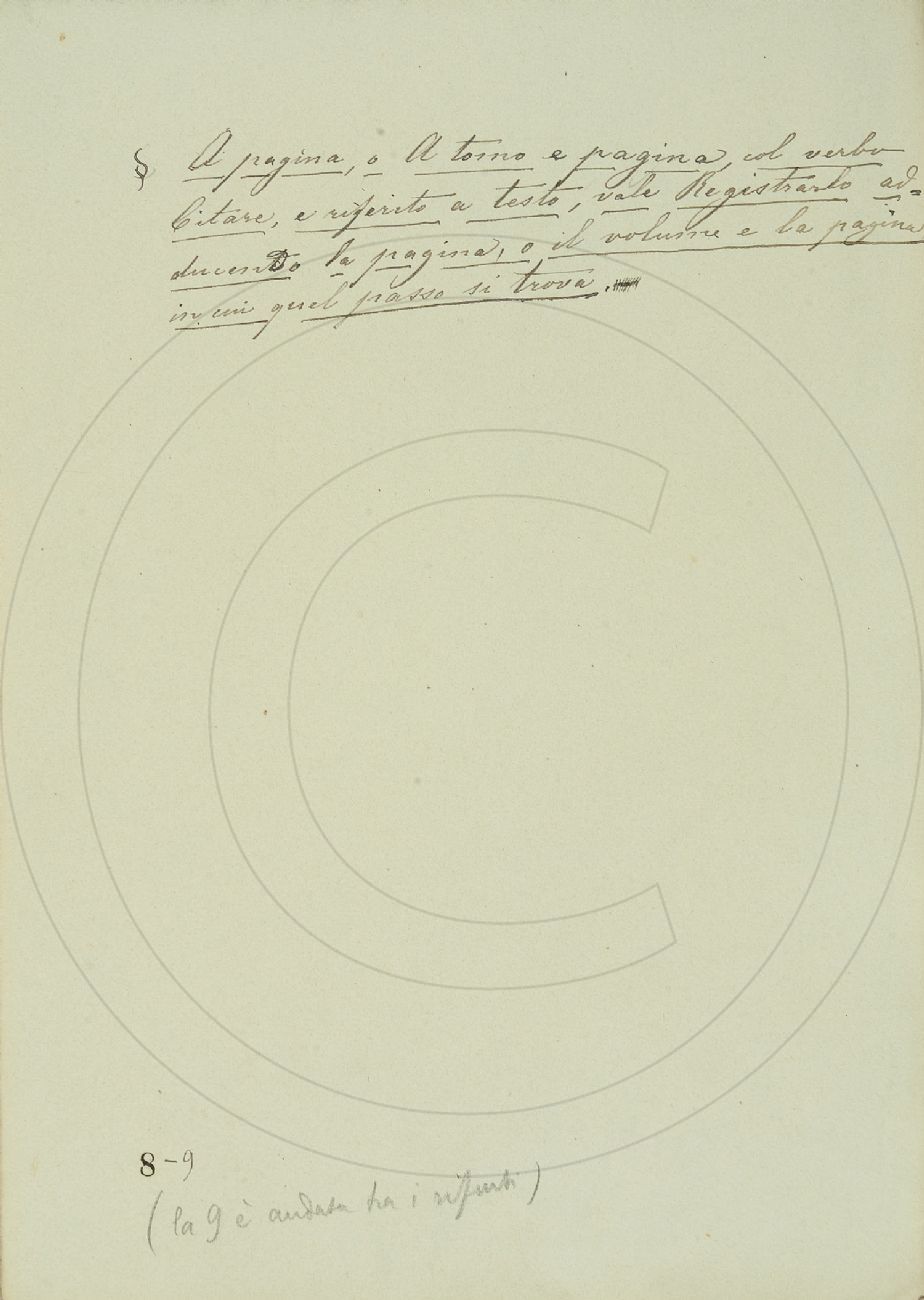 § A pagina, o A tomo e pagina, col verbo
Citare, e riferito a testo, vale Registrarlo ad=
ducendo la pagina, o il volume e la pagina
in cui quel passo si trova.
8-9
(la 9 è andata tra i rifiuti)